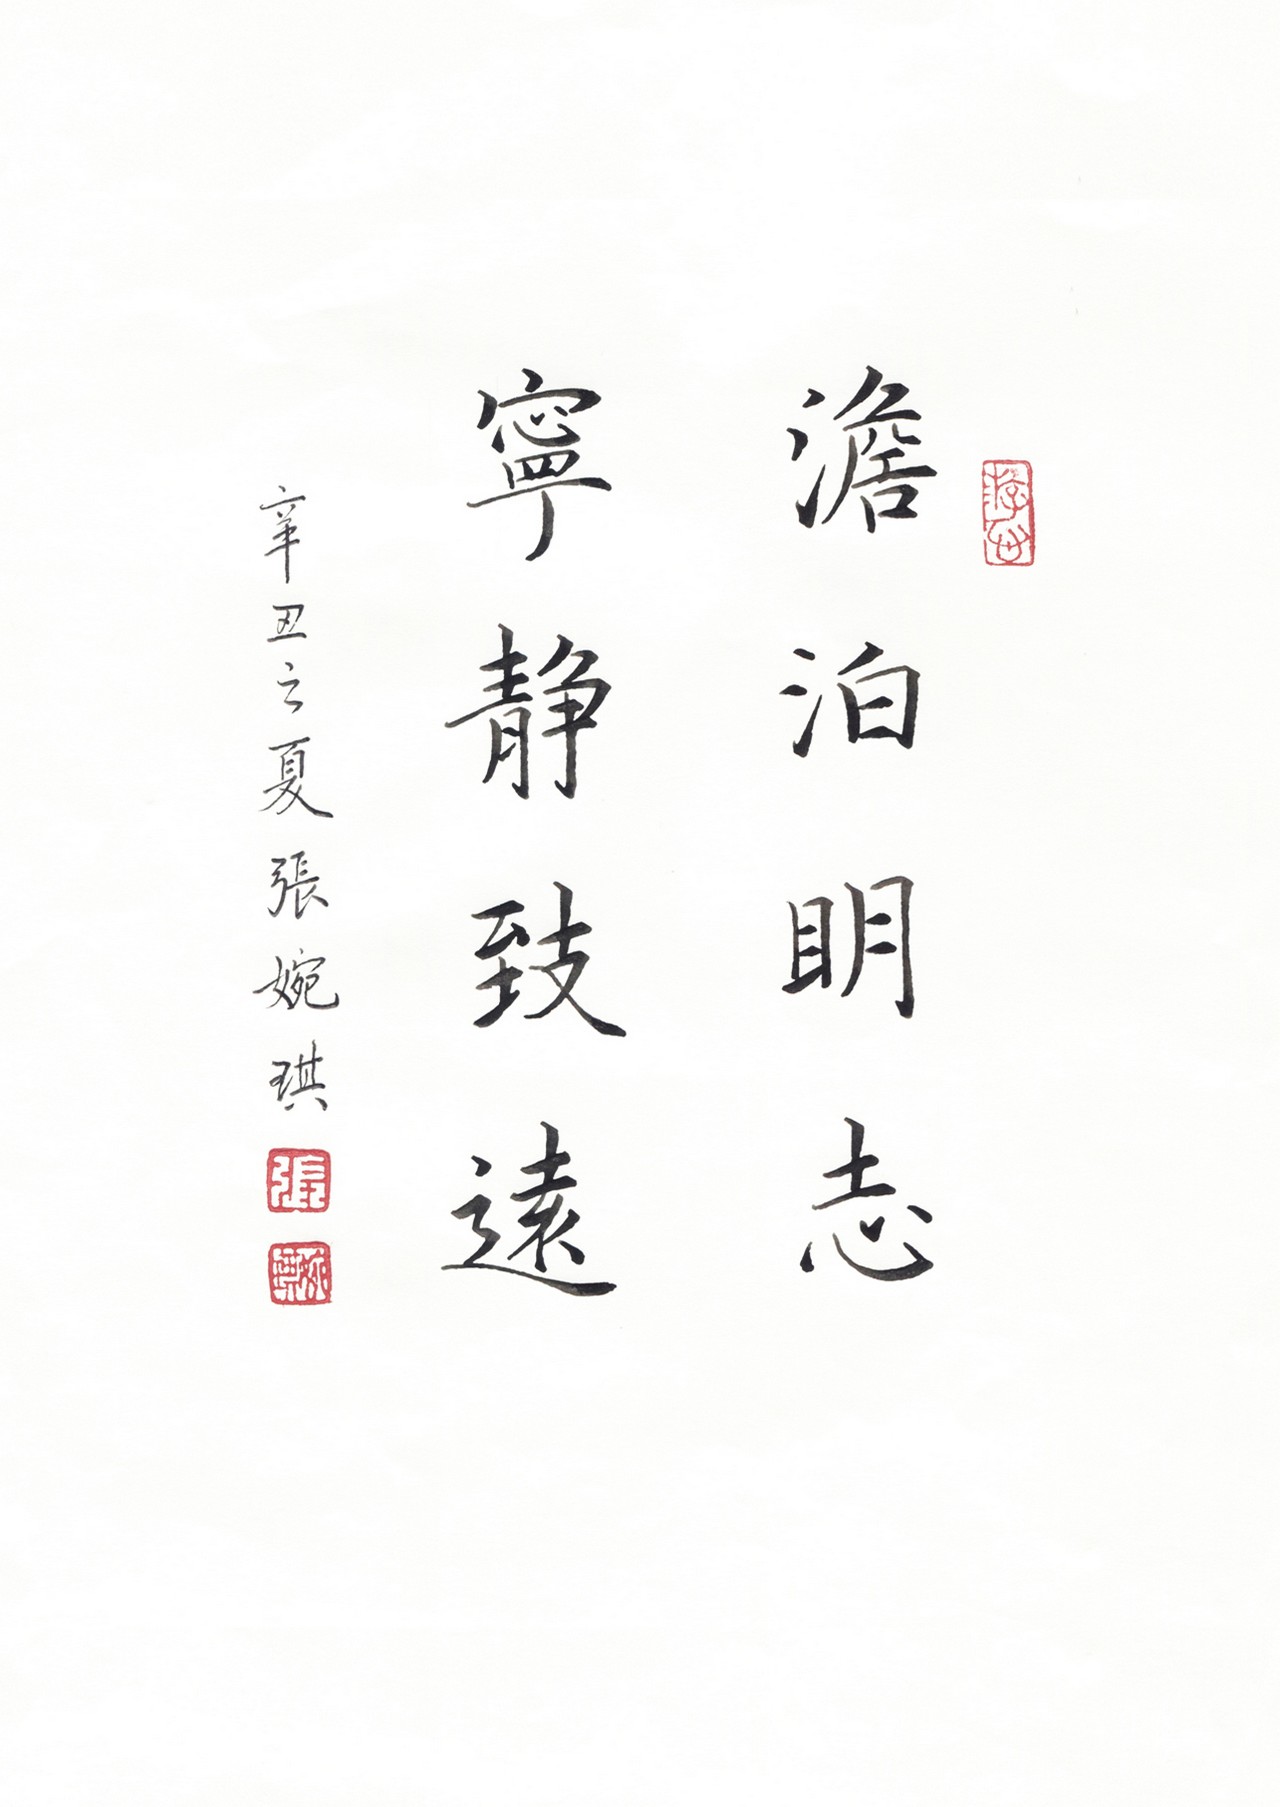 澹泊明志
寧靜致遠
辛丑之夏張婉琪
張